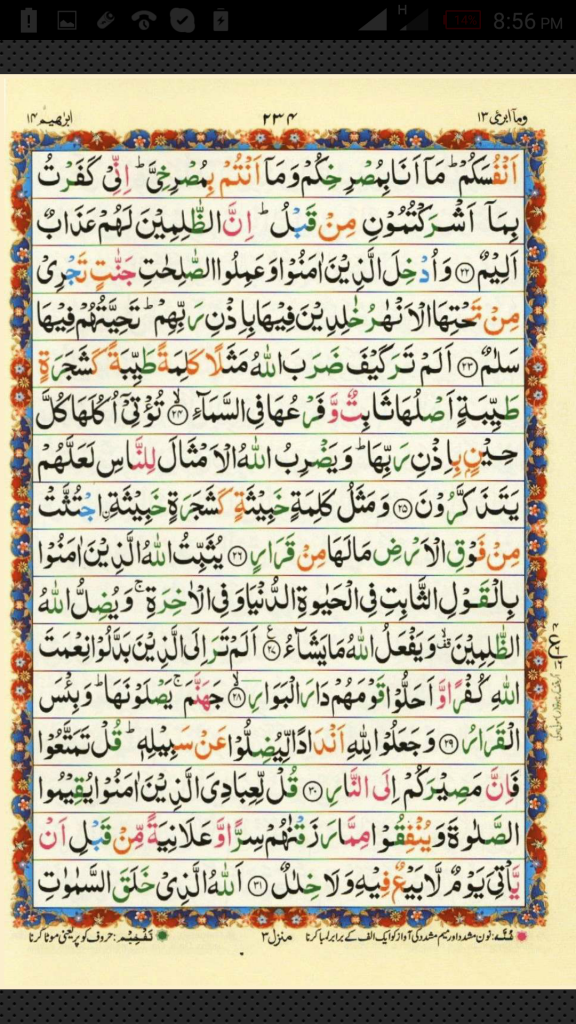 H 14% 8:56 PM
ابرٰھیم ۱۴ ۲۳۴ وما ابرئ ۱۳
اَنْفُسَكُمْ ؕ مَاۤ اَنَا بِمُصْرِخِكُمْ وَمَاۤ اَنْتُمْ بِمُصْرِخِیَّ ؕ اِنِّیْ كَفَرْتُ
بِمَاۤ اَشْرَكْتُمُوْنِ مِنْ قَبْلُ ؕ اِنَّ الظّٰلِمِیْنَ لَهُمْ عَذَابٌ
اَلِیْمٌ ۝۲۲ وَاُدْخِلَ الَّذِیْنَ اٰمَنُوْا وَعَمِلُوا الصّٰلِحٰتِ جَنّٰتٍ تَجْرِیْ
مِنْ تَحْتِهَا الْاَنْهٰرُ خٰلِدِیْنَ فِیْهَا بِاِذْنِ رَبِّهِمْ ؕ تَحِیَّتُهُمْ فِیْهَا
سَلٰمٌ ۝۲۳ اَلَمْ تَرَ كَیْفَ ضَرَبَ اللّٰهُ مَثَلًا كَلِمَةً طَیِّبَةً كَشَجَرَةٍ
طَیِّبَةٍ اَصْلُهَا ثَابِتٌ وَّفَرْعُهَا فِی السَّمَآءِ ۝۲۴ۙ تُؤْتِیْۤ اُكُلَهَا كُلَّ
حِیْنٍۭ بِاِذْنِ رَبِّهَا ؕ وَیَضْرِبُ اللّٰهُ الْاَمْثَالَ لِلنَّاسِ لَعَلَّهُمْ
یَتَذَكَّرُوْنَ ۝۲۵ وَمَثَلُ كَلِمَةٍ خَبِیْثَةٍ كَشَجَرَةٍ خَبِیْثَةِ ِ۟اجْتُثَّتْ
مِنْ فَوْقِ الْاَرْضِ مَا لَهَا مِنْ قَرَارٍ ۝۲۶ یُثَبِّتُ اللّٰهُ الَّذِیْنَ اٰمَنُوْا
بِالْقَوْلِ الثَّابِتِ فِی الْحَیٰوةِ الدُّنْیَا وَفِی الْاٰخِرَةِ ۚ وَیُضِلُّ اللّٰهُ
الظّٰلِمِیْنَ ۙ۫ وَیَفْعَلُ اللّٰهُ مَا یَشَآءُ ۝۲۷ اَلَمْ تَرَ اِلَی الَّذِیْنَ بَدَّلُوْا نِعْمَتَ
اللّٰهِ كُفْرًا وَّاَحَلُّوْا قَوْمَهُمْ دَارَ الْبَوَارِ ۝۲۸ۙ جَهَنَّمَ ۚ یَصْلَوْنَهَا ؕ وَبِئْسَ
الْقَرَارُ ۝۲۹ وَجَعَلُوْا لِلّٰهِ اَنْدَادًا لِّیُضِلُّوْا عَنْ سَبِیْلِهٖ ؕ قُلْ تَمَتَّعُوْا
فَاِنَّ مَصِیْرَكُمْ اِلَی النَّارِ ۝۳۰ قُلْ لِّعِبَادِیَ الَّذِیْنَ اٰمَنُوْا یُقِیْمُوا
الصَّلٰوةَ وَیُنْفِقُوْا مِمَّا رَزَقْنٰهُمْ سِرًّا وَّعَلَانِیَةً مِّنْ قَبْلِ اَنْ
یَّاْتِیَ یَوْمٌ لَّا بَیْعٌ فِیْهِ وَلَا خِلٰلٌ ۝۳۱ اَللّٰهُ الَّذِیْ خَلَقَ السَّمٰوٰتِ
غُنَّه: نون مشدد اور میم مشدد کی آواز کو ایک الف کے برابر لمبا کرنا منزل ۳ تَفْخِیْم: حروف کو پُر یعنی موٹا کرنا